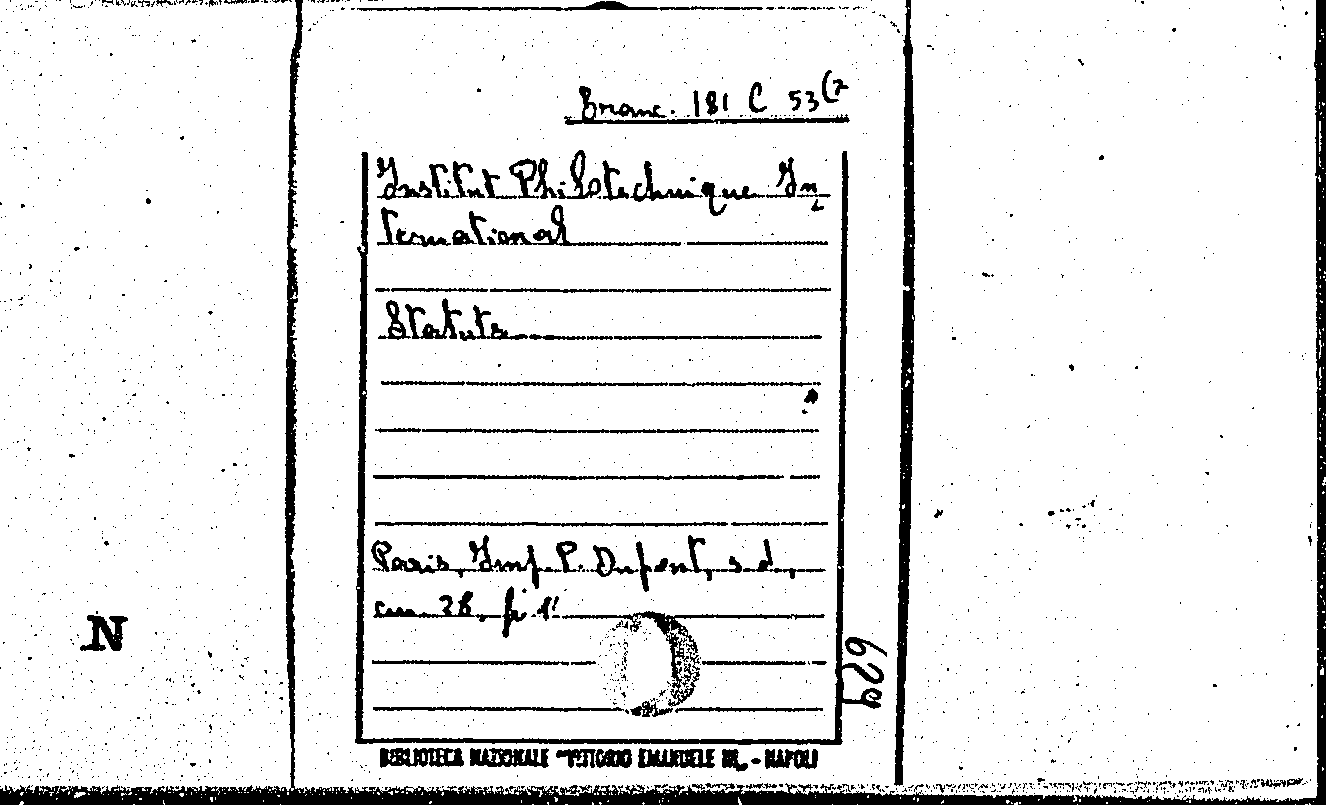 Branc. 181 C 53(2
Institut Philotechnique In=
ternational
Statuts
Paris, Imp. P. Dupont, s.d.,
cm. 28,
N
629
BIBLIOTECA NAZIONALE "VITTORIO EMANUELE III" - NAPOLI